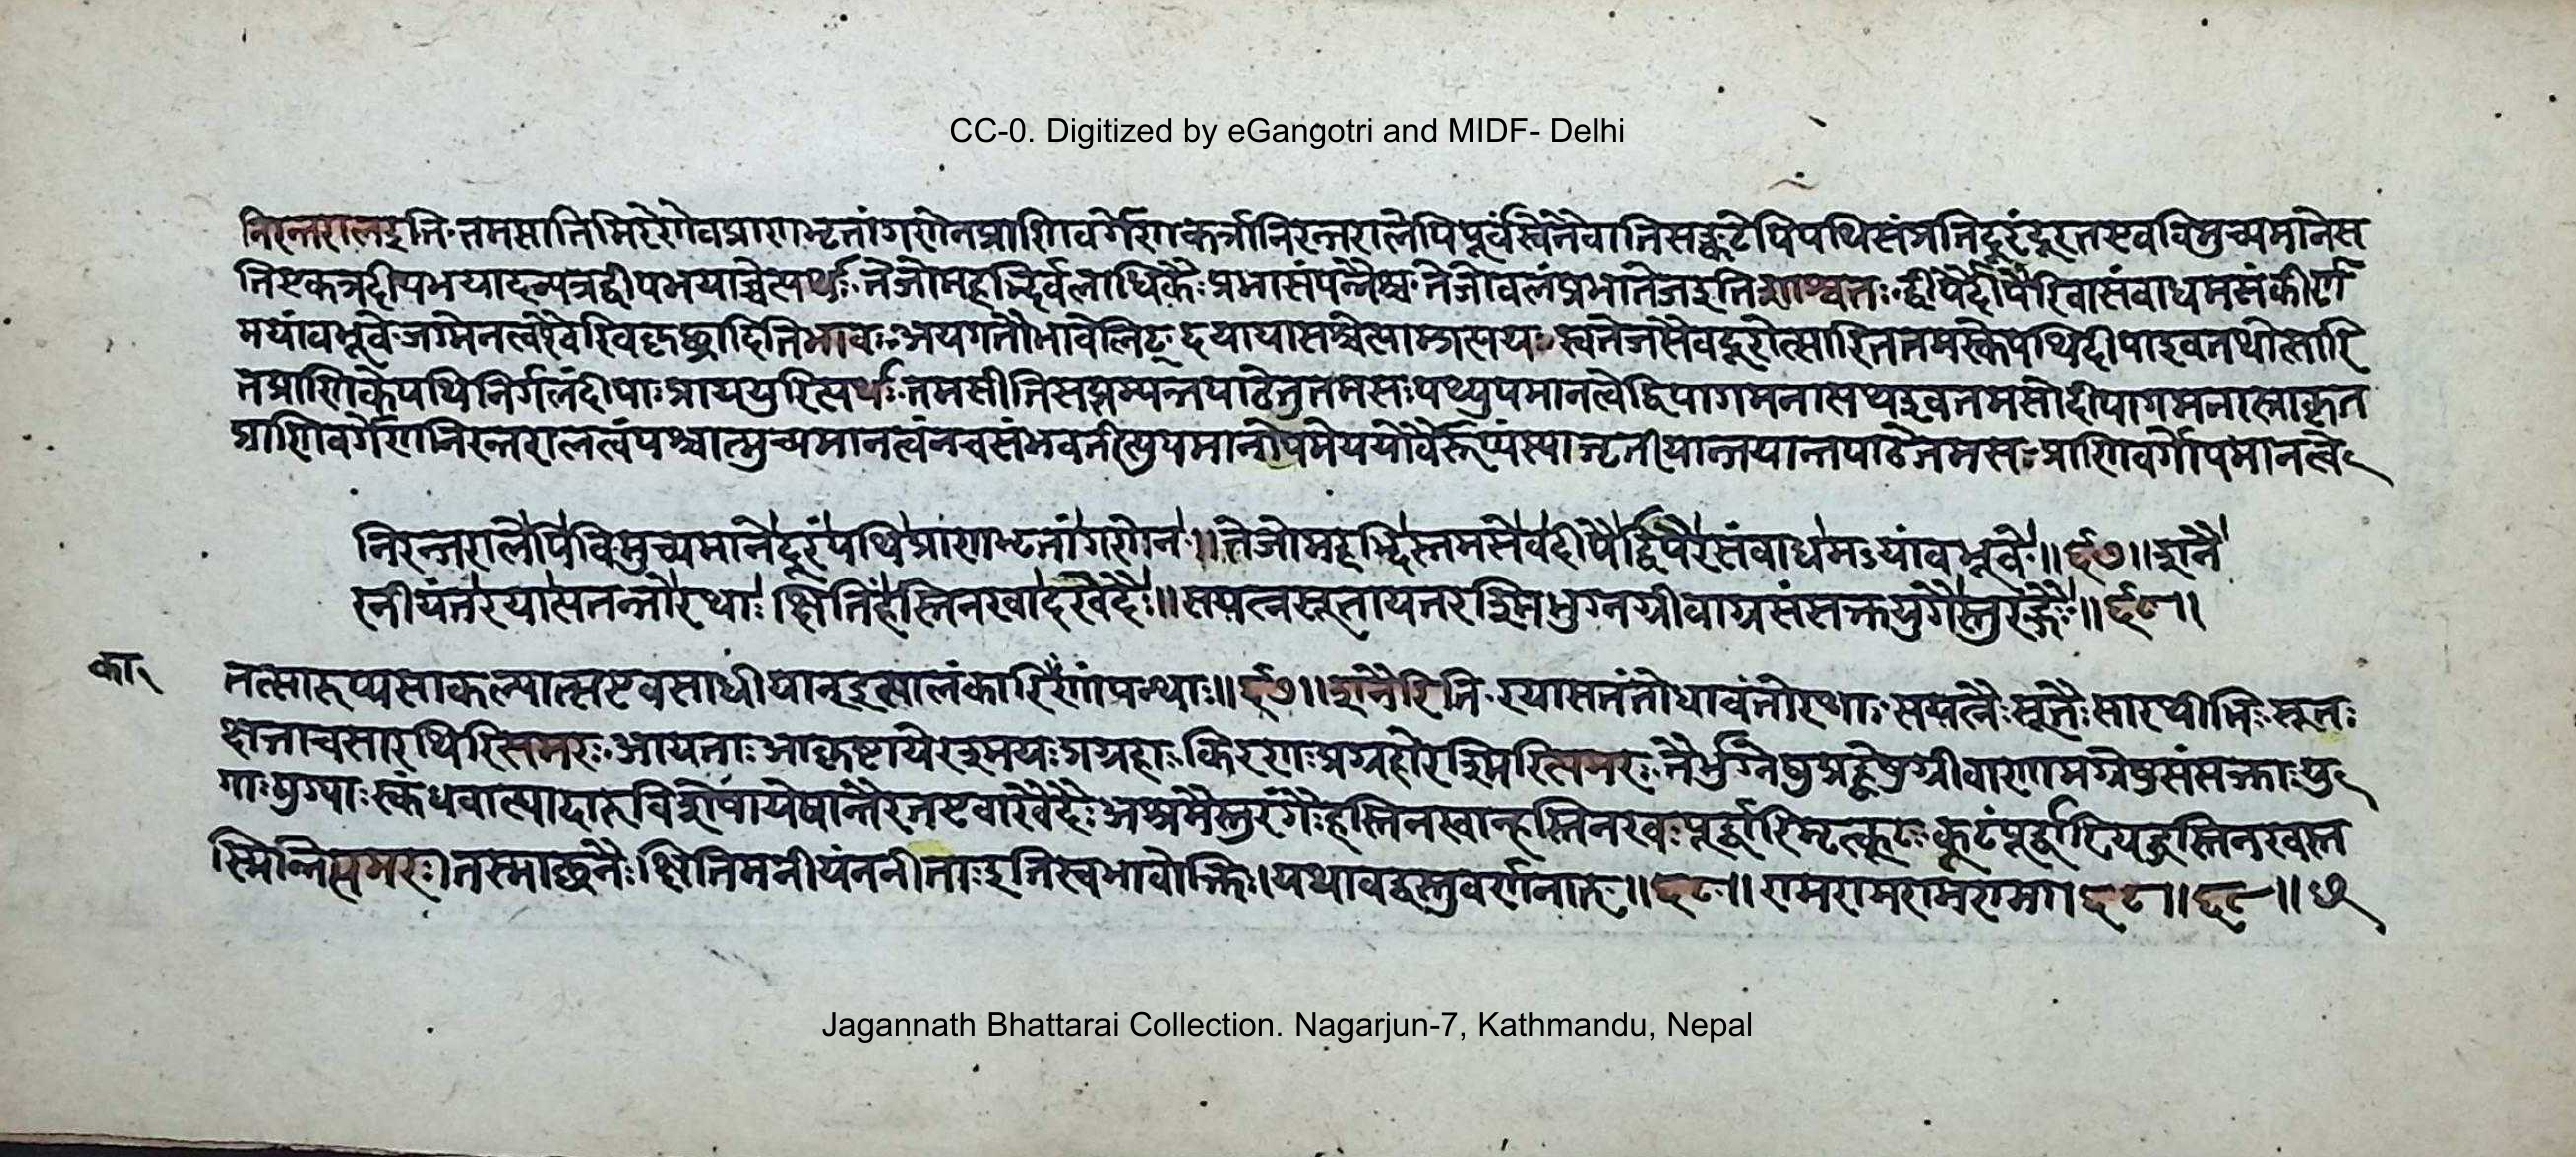 CC-0. Digitized by eGangotri and MIDF- Delhi
निरन्तरालइति तमसातिमिरेरोवप्राणभृतांगणेनप्राणिवर्गेणकर्त्रानिरन्तरालेपिपूर्वंस्वेनैवातिसङ्कटेपिपथिसंप्रतिदूरंदूरतएवविमुच्यमानेस
तिएकत्रदीपभयादन्यत्रद्वीपभयाच्चेत्यर्थः तेजोमहद्भिर्वलाधिकैः प्रभासंपन्नैश्च तेजोवलंप्रभातेजइतिशाश्वतः द्वीपैर्दीपैरिवासंवाधमसंकीर्ण
मयांवभूवे जग्मेनत्वरैवेरिवकृछ्रादितिभावः अयगतौभावेलिट् दयायासश्चेत्याम्प्रत्ययः स्वतेजसैवदूरोत्सारिततमस्केपथिदीपाइवनथोत्सारि
तप्राणिकेपथिनिर्गलंद्वीपाः प्राययुरित्यर्थः तमसीतिसप्तम्यन्तपाठेतुतमसः पथ्युपमानत्वेद्विपागमनासथइवतमसोदीपागमनात्प्राकृत
प्राणिवर्गेणनिरन्तरालत्वंपश्चान्मुच्यमानत्वंनचसंभवतीत्युपमानोपमेययोर्वैरूप्यंस्यात्तृतीयान्तपाठेतमसः प्राणिवर्गोपमानत्वे
निरन्तरालेपिविमुच्यमानेदूरंपथिप्राणभृतांगणेन॥तेजोमहद्भिस्तमसेवदीपैर्द्विपैरसंवाधमऽयांवभूवे॥६७॥शनै
रनीयंतरयात्सतन्तोरथाः क्षितिंहस्तिनखादखेदैः॥सयत्नसूतायतरश्मिभुग्नग्रीवाग्रसंसक्तयुगैस्तुरङ्गैः॥६८॥
का
तत्सारूप्यसाकल्यात्सएवसाधीयानइत्यालंकारिकाणांपन्थाः॥६७॥शनैरिति रयात्सतंतोधावंतोरथाः सयत्नैः सूतैः सारथीभिः सूतः
क्षत्ताचसारथिरित्यमरः आयताः आकृष्टायेरश्मयः प्रग्रहाः किरणप्रग्रहौरश्मिरित्यमरः तैर्भुग्नेषुप्रह्वेषुग्रीवाणामग्रेषुसंसक्ताः यु
गाः युग्याः स्कंधवाह्यादारुविशेषायेषान्तैरतएवाखेदैः अश्रमैस्तुरंगैः हस्तिनखान्हस्तिनखः पूर्द्वारिमृत्कूटः कूटंपूर्द्वारियद्धस्तिनखस्त
स्मिन्नित्यमरः।तस्माछनैः क्षितिमनीयंतनीताः इतिस्वभावोक्तिः।यथावद्वस्तुवर्णनात्॥६८॥रामरामरामराम॥६८॥६८॥
Jagannath Bhattarai Collection. Nagarjun-7, Kathmandu, Nepal